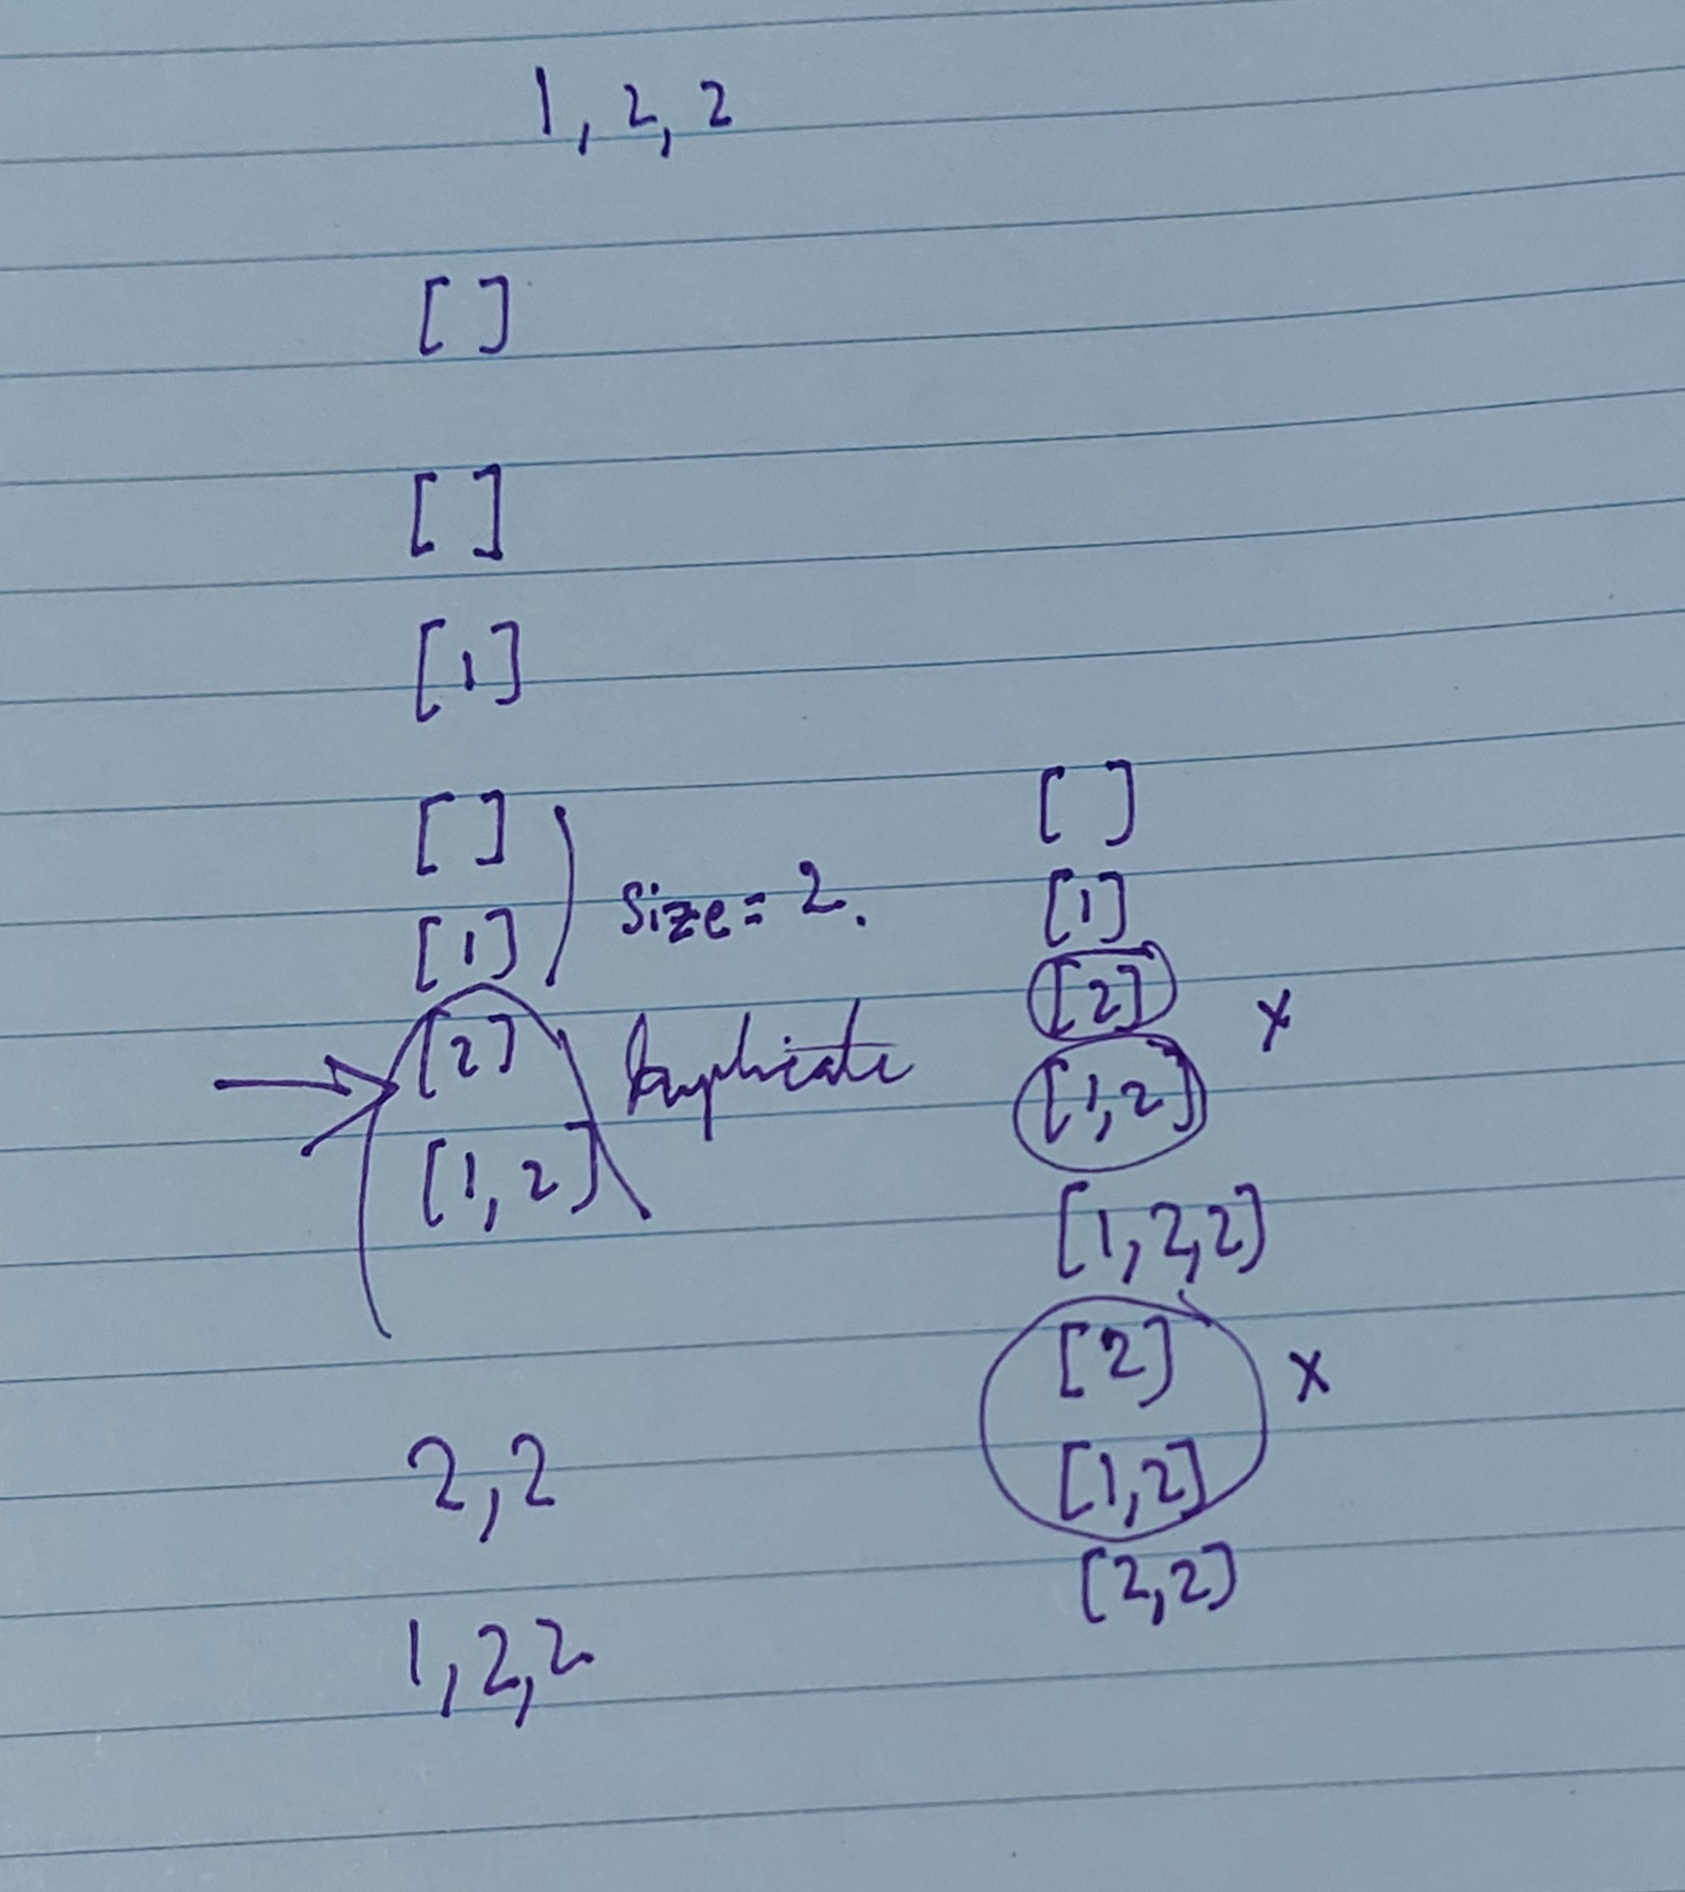 1, 2, 2
[ ]
[ ]
[1]
[ ]
[1]
size = 2.
[2]
[1, 2]
Duplicate
2, 2
1, 2, 2
[ ]
[1]
[2]
x
[1, 2]
[1, 2, 2]
[2]
x
[1, 2]
[2, 2]